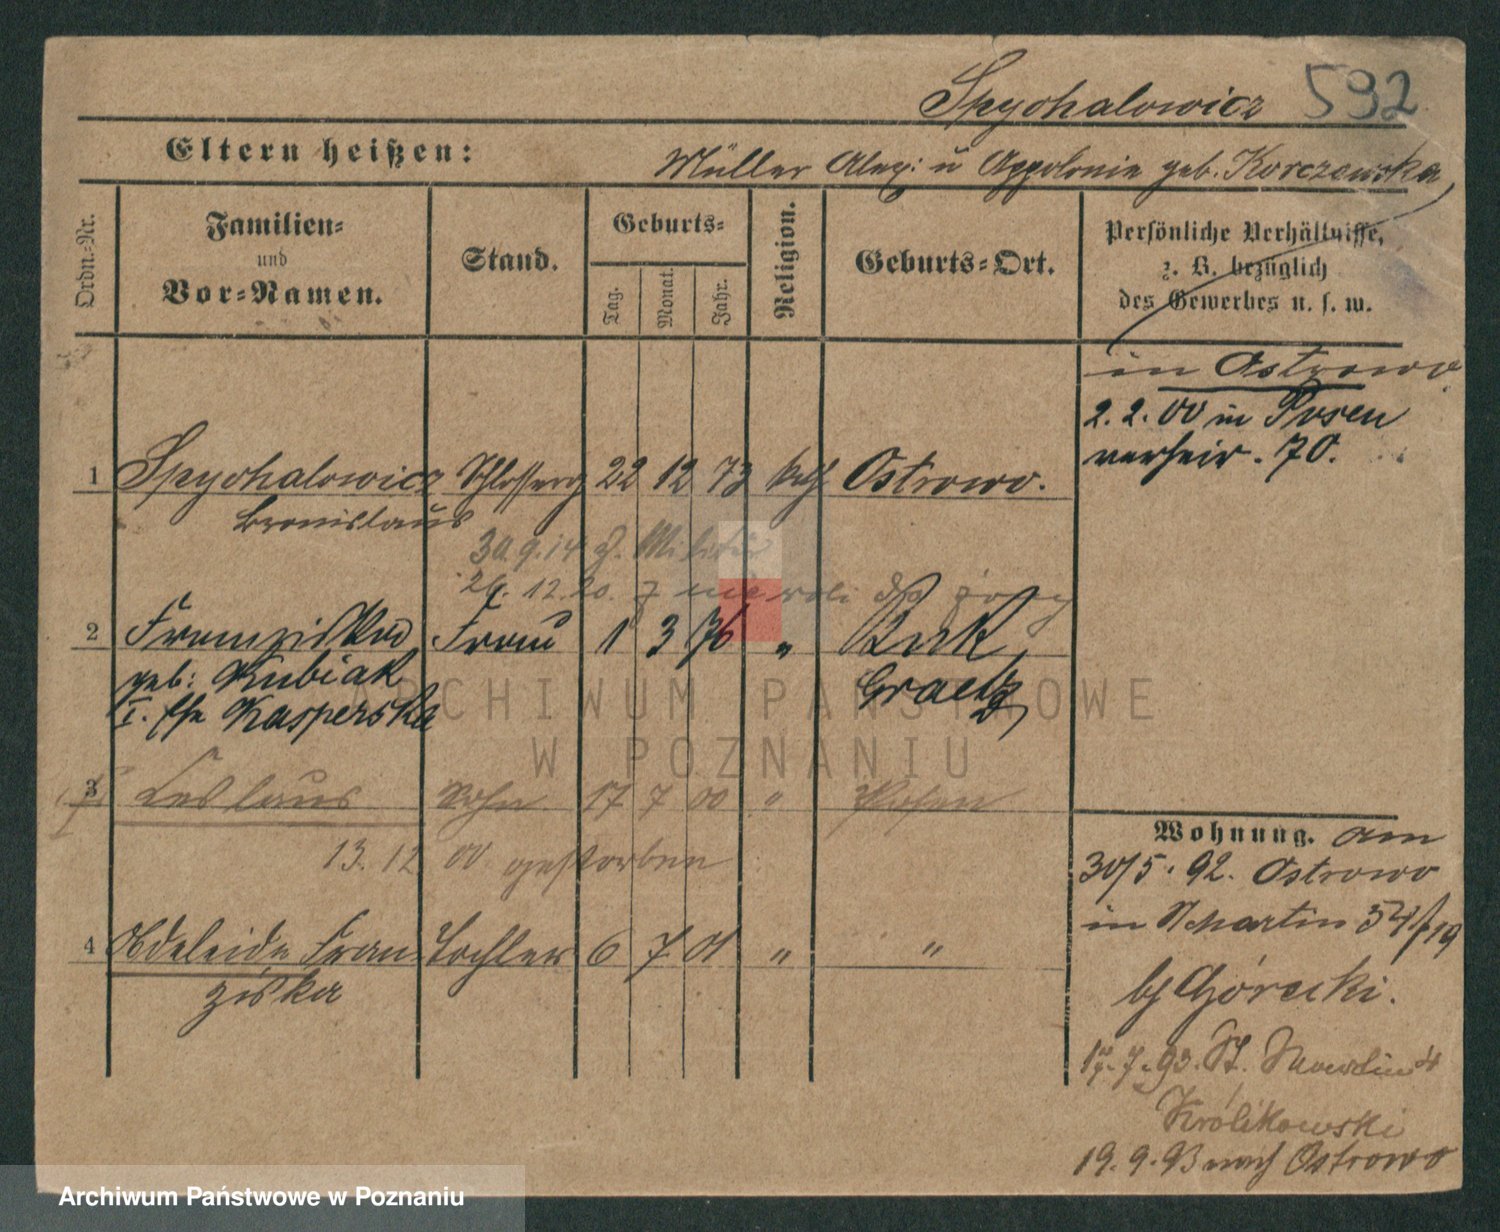 Spychalowicz 592
Eltern heißen:
Müller Alex: u Appolonie geb. Korczewska,
Ordn.-Nr.
Familien-
und
Vor-Namen.
Stand.
Geburts-
Tag.
Monat.
Jahr.
Religion.
Geburts-Ort.
Persönliche Verhältnisse,
z. B. bezüglich
des Gewerbes u. s. w.
in Ostrowo
2.2.00 in Posen
verheir. 70.
1 Spychalowicz Schlosserg 22 12 73 kath Ostrowo.
Bronislaus
30.9.14 z. Militär
26.12.20. z
2 Franziska Frau 1 3 76 " Buk
geb: Kubiak Graetz
I. Kasperska
3 Ceslaus Sohn 17 7 00 " Posen
13. 12 00 gestorben
4 Adeleide Fran- Tochter 6 7 01 " "
ziska
Wohnung. am
30/5. 92. Ostrowo
in St Martin 54/ 19
by Górecki.
7. 93. St. Martin 4
Królikowski
19.9.93 nach Ostrowo
ARCHIWUM PAŃSTWOWE
W POZNANIU
Archiwum Państwowe w Poznaniu